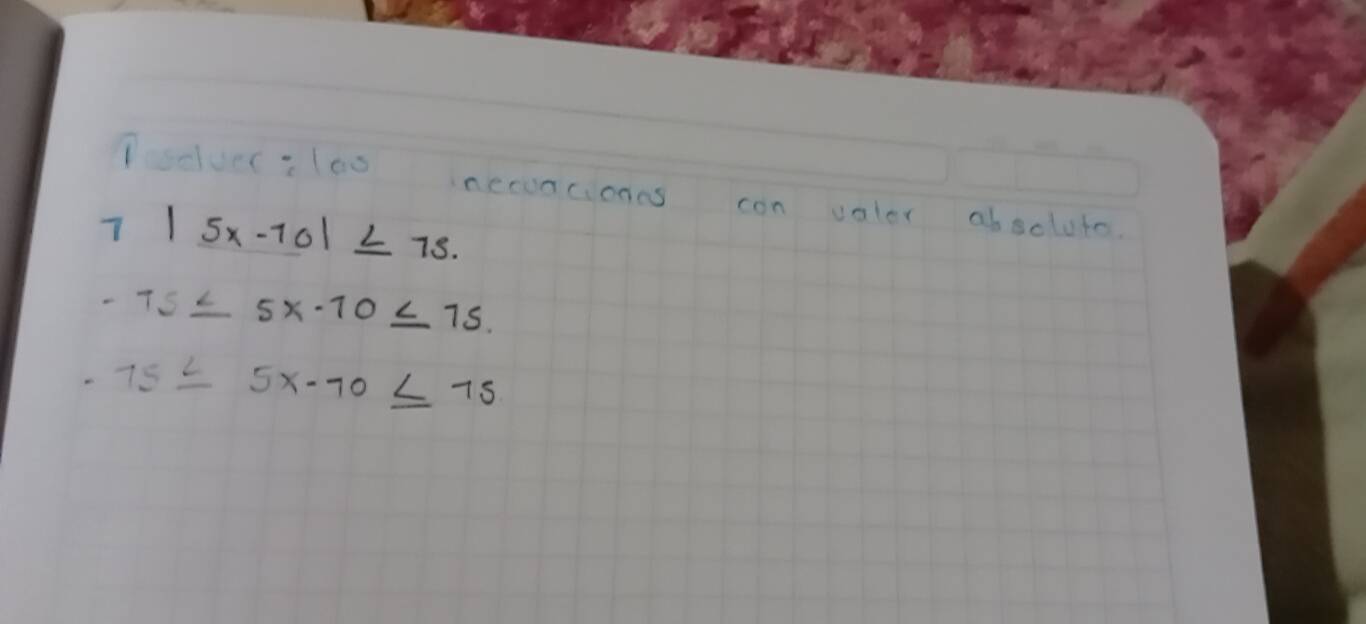 Resolver: las inecuaciones con valor absoluto.
1 |5x-10| ≤ 15.
-15 ≤ 5x-10 ≤ 15.
-15 ≤ 5x-10 ≤ 15